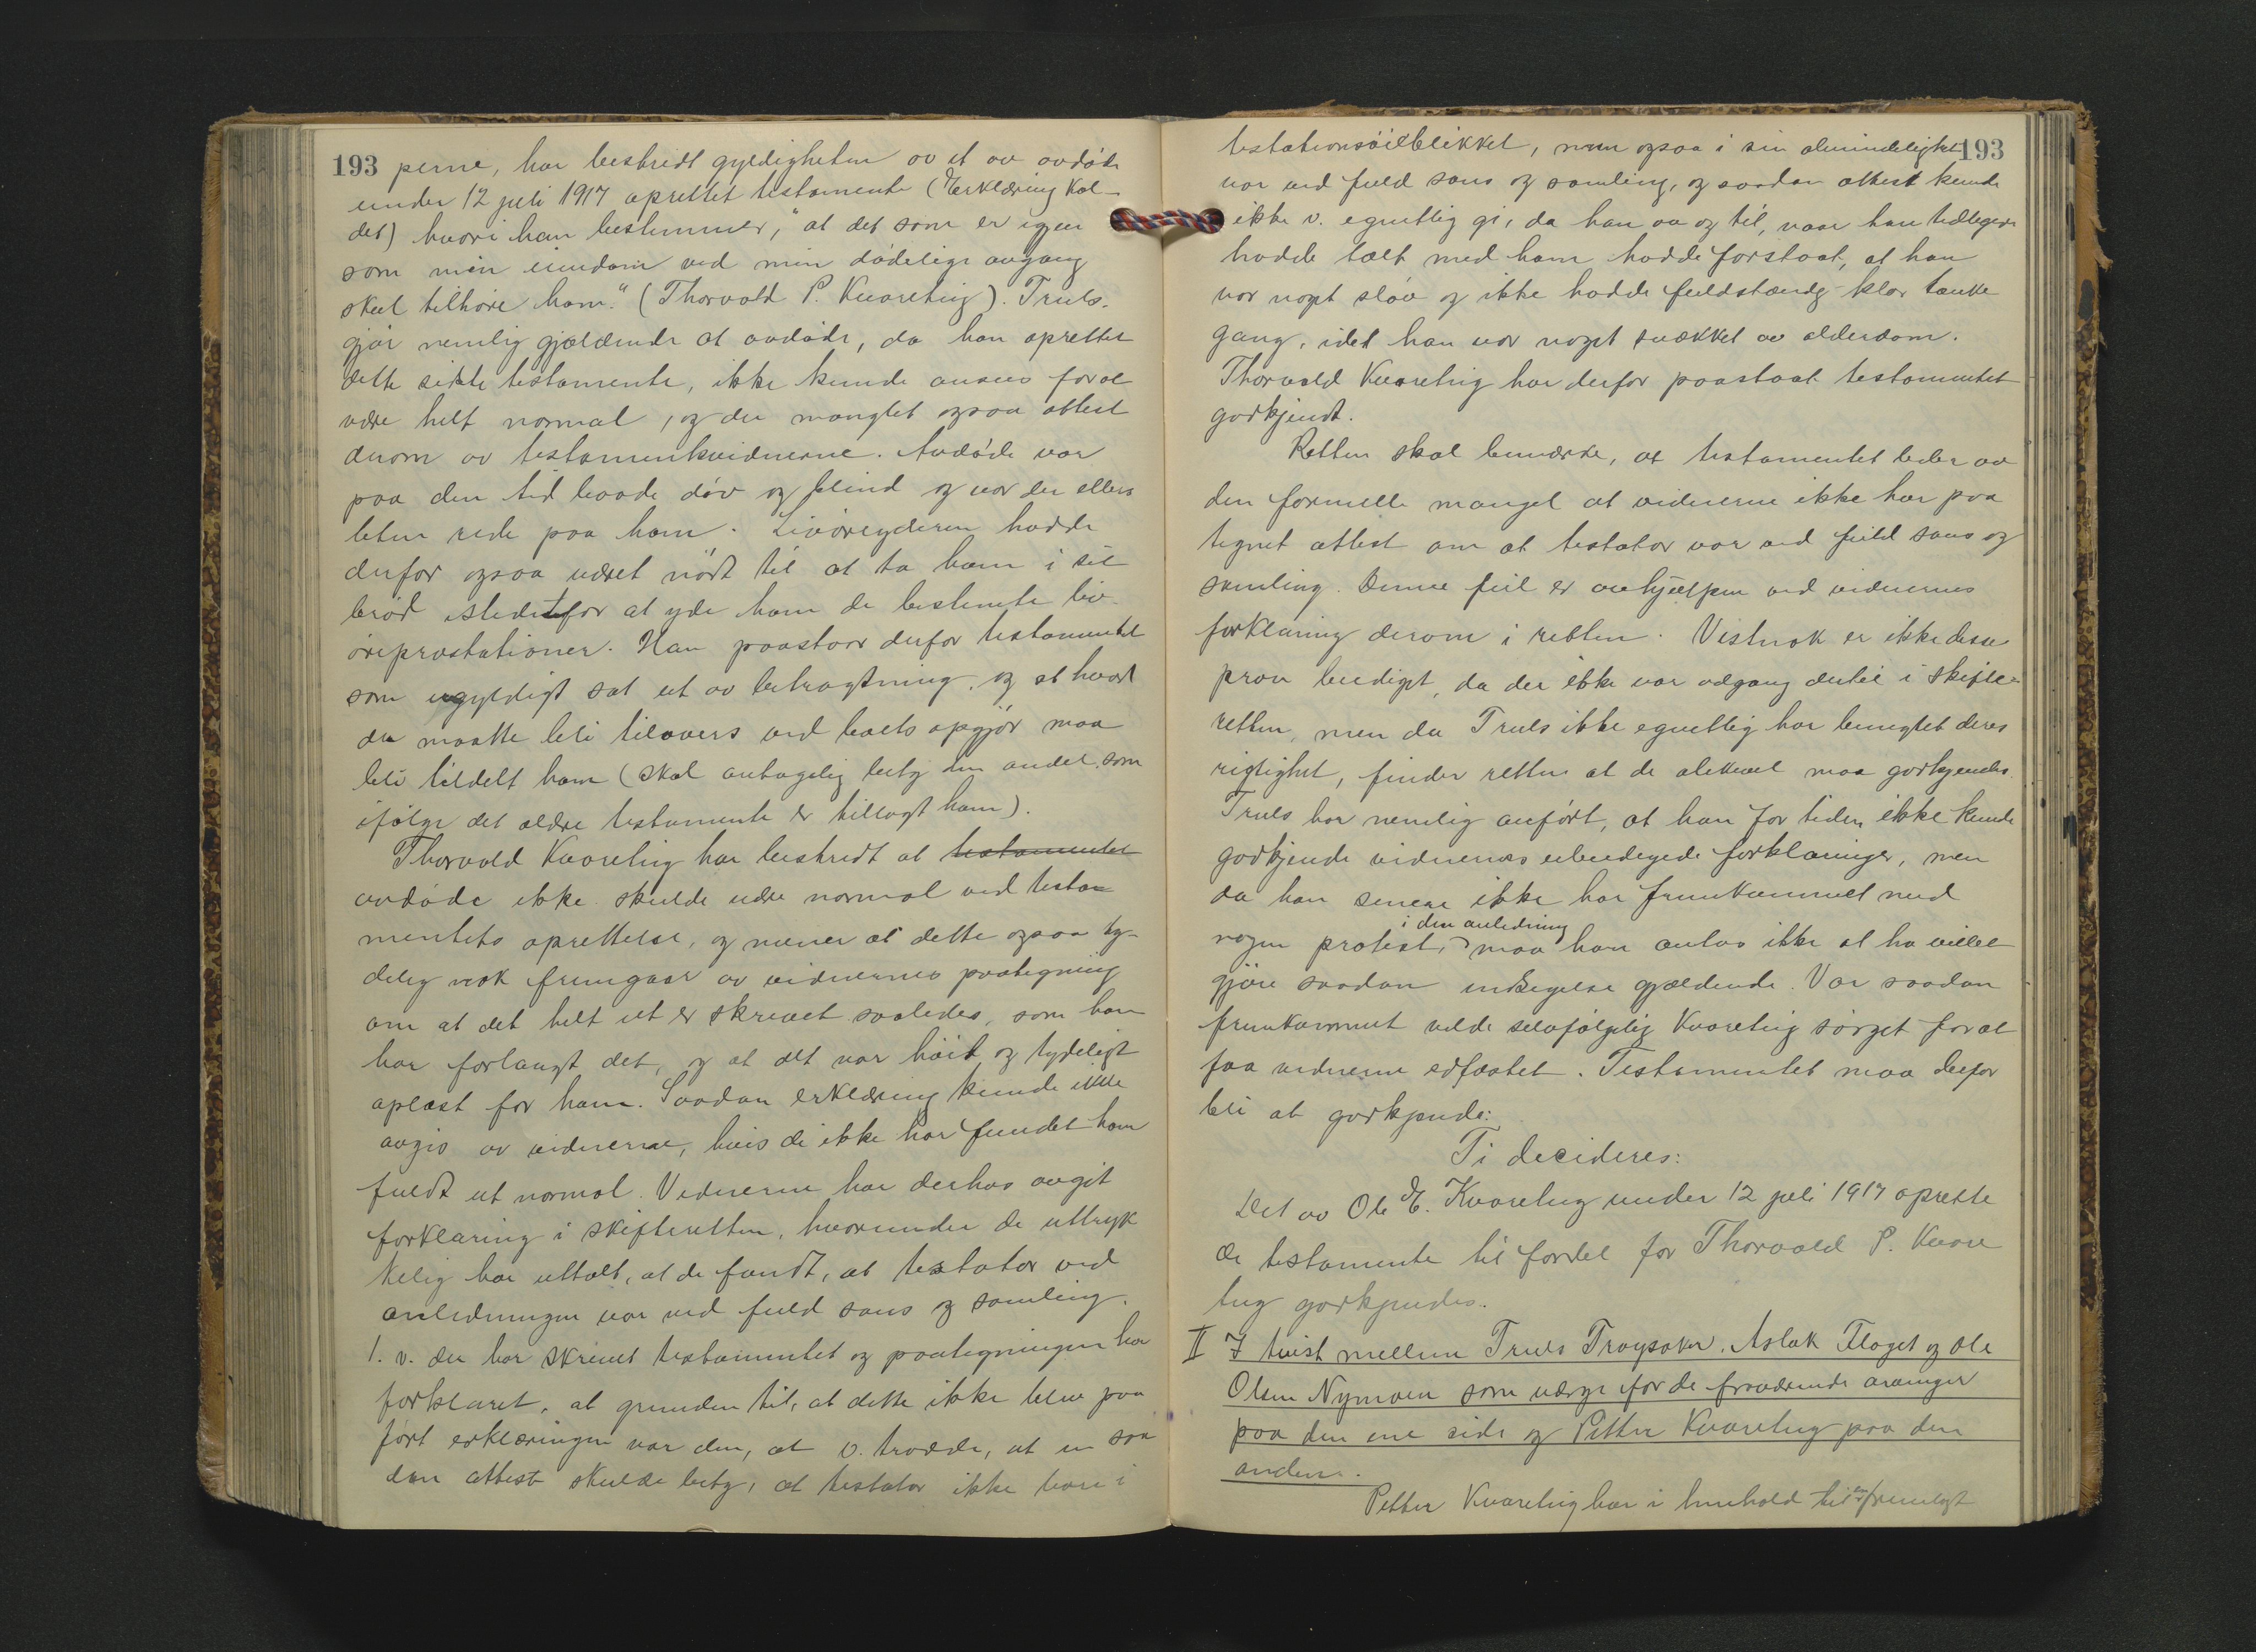 193 perne, har bestridt gyldigheten av et av avdøde
under 12 juli 1917 oprettet testamente (Erklæring kal-
det) hvori han bestemmer, "at det som er igjen
som min eiendom ved min dødelige avgang
skal tilhøre ham." (Thorvald P. Kvaretvig). Truls.
gjør nemlig gjældende at avdøde, da han oprettet
dette sidste testamente, ikke kunde ansees for at
være helt normal, og der manglet ogsaa attest
derom av testamentsvidnerne. Avdøde var
paa den tid baade døv og blind og var der ellers
liten rede paa ham. Livøreyderen hadde
derfor ogsaa været nødt til at ta ham i sit
brød istedetfor at yde ham de bestemte liv-
øreprestationer. Han paastaar derfor testamentet
som ugyldigt sat ut av betragtning, og at hvad
der maatte bli tilovers ved boets opgjør maa
bli tildelt ham (skal antagelig bety den andel, som
ifølge det ældre testamente er tillagt ham).
Thorvald Kvaretvig har bestridt at testamentet
avdøde ikke skulde være normal ved testa-
mentets oprettelse, og mener at dette ogsaa ty-
delig nok fremgaar av vidnernes paategning
om at det helt ut er skrevet saaledes, som han
har forlangt det, og at det var høit og tydeligt
oplæst for ham. Saadan erklæring kunde ikke
avgis av vidnerne, hvis de ikke har fundet ham
fuldt ut normal. Vidnerne har derhos avgit
forklaring i skifteretten, hvorunder de uttryk
kelig har uttalt, at de fandt, at testator ved
anledningen var ved fuld sans og samling.
1. v. der har skrevet testamentet og paategningen har
forklaret, at grunden til, at dette ikke blev paa
ført erklæringen var den, at v. trodde, at en saa
dan attest skulde bety, at testator ikke bare i
193
testationsøieblikket, men ogsaa i sin almindelighet
var ved fuld sans og samling, og saadan attest kunde
ikke v. egentlig gi, da han av og til, naar han tidligere
hadde talt med ham hadde forstaat, at han
var noget sløv og ikke hadde fuldstændig klar tanke
gang, idet han var noget svækket av alderdom.
Thorvald Kvaretvig har derfor paastaat testamentet
godkjendt.
Retten skal bemærke, at testamentet lider av
den formelle mangel at vidnerne ikke har paa
tegnet attest om at testator var ved fuld sans og
samling. Denne feil er avhjulpen ved vidnernes
forklaring derom i retten. Vistnok er ikke disse
prov beediget, da der ikke var adgang dertil i skifte-
retten, men da Truls ikke egentlig har benegtet deres
rigtighet, finder retten at de allikevel maa godkjendes.
Truls har nemlig anført, at han for tiden ikke kunde
godkjende vidnernes ubeedigede forklaringer, men
da han senere ikke har fremkommet med
i den anledning
nogen protest, maa han antas ikke at ha villet
gjøre saadan indsigelse gjældende. Var saadan
fremkommet vilde selvfølgelig Kvaretvig sørget for at
faa vidnerne edfæstet. Testamentet maa derfor
bli at godkjende:
Ti decideres:
Det av Ole E. Kvaretvig under 12 juli 1917 oprette
de testamente til fordel for Thorvald P. Kvare
tvig godkjendes.
II I tvist mellem Truls Traysaker, Aslak Flaget og Ole
Olsen Nymoen som værge for de fraværende arvinger
paa den ene side og Petter Kvaretvig paa den
anden.
Petter Kvaretvig har i henhold til en fremlagt